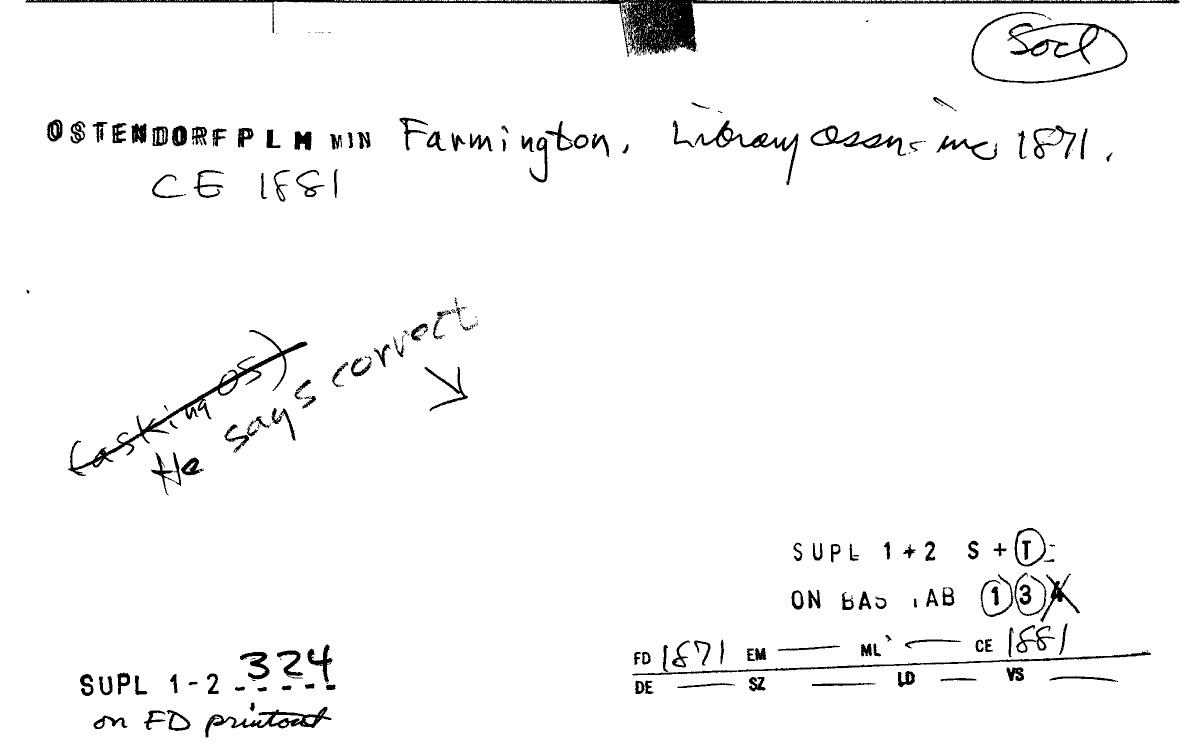 Socl
OSTENDORF P L M MIN Farmington, Library assn - inc 1871.
CE 1881
(asking OS)
He says correct
SUPL 1+2 S + T
ON BAS TAB 1 3 4
FD 1871 EM — ML — CE 1881
DE — SZ — LD — VS —
SUPL 1-2 324
on FD printout